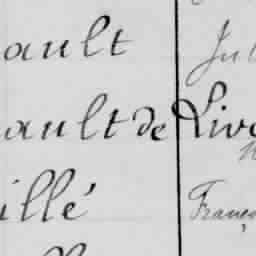 ault Jul
ault de Livo
illé Franç